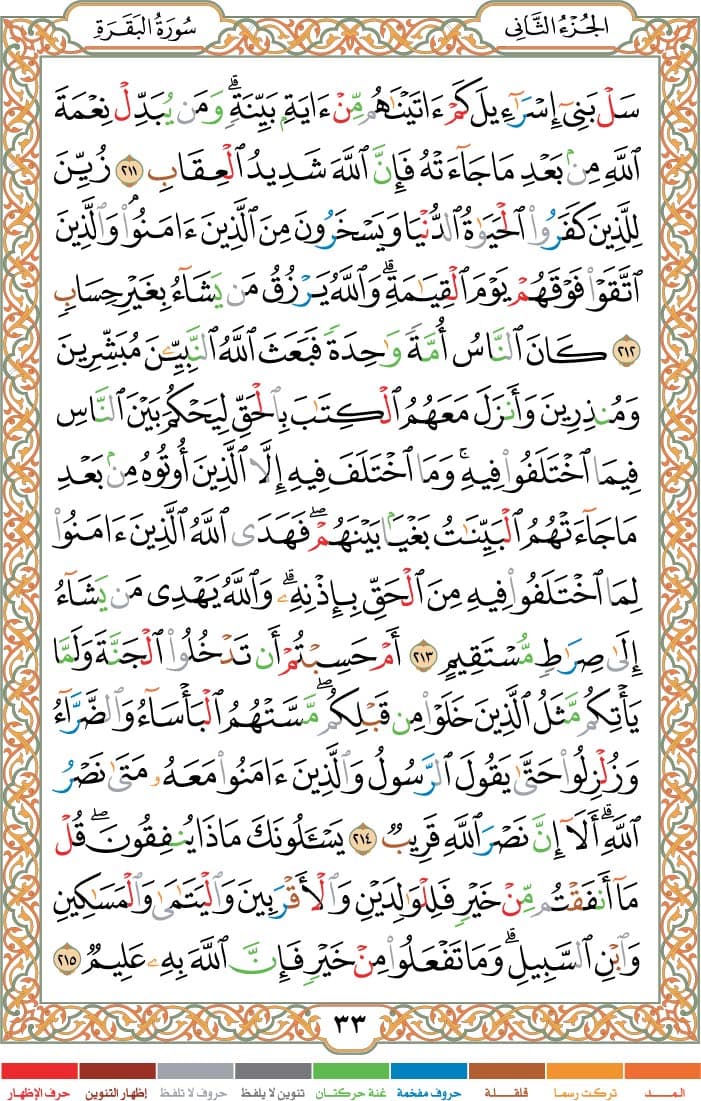 الجُزْءُ الثَّانِي
سُورَةُ البَقَرَةِ
سَلْ بَنِىٓ إِسْرَٰٓءِيلَ كَمْ ءَاتَيْنَٰهُم مِّنْ ءَايَةٍۭ بَيِّنَةٍۗ وَمَن يُبَدِّلْ نِعْمَةَ
ٱللَّهِ مِنۢ بَعْدِ مَا جَآءَتْهُ فَإِنَّ ٱللَّهَ شَدِيدُ ٱلْعِقَابِ ٢١١ زُيِّنَ
لِلَّذِينَ كَفَرُوا۟ ٱلْحَيَوٰةُ ٱلدُّنْيَا وَيَسْخَرُونَ مِنَ ٱلَّذِينَ ءَامَنُوا۟ۘ وَٱلَّذِينَ
ٱتَّقَوْا۟ فَوْقَهُمْ يَوْمَ ٱلْقِيَٰمَةِۗ وَٱللَّهُ يَرْزُقُ مَن يَشَآءُ بِغَيْرِ حِسَابٍ
٢١٢ كَانَ ٱلنَّاسُ أُمَّةً وَٰحِدَةً فَبَعَثَ ٱللَّهُ ٱلنَّبِيِّـۧنَ مُبَشِّرِينَ
وَمُنذِرِينَ وَأَنزَلَ مَعَهُمُ ٱلْكِتَٰبَ بِٱلْحَقِّ لِيَحْكُمَ بَيْنَ ٱلنَّاسِ
فِيمَا ٱخْتَلَفُوا۟ فِيهِۚ وَمَا ٱخْتَلَفَ فِيهِ إِلَّا ٱلَّذِينَ أُوتُوهُ مِنۢ بَعْدِ
مَا جَآءَتْهُمُ ٱلْبَيِّنَٰتُ بَغْيًۢا بَيْنَهُمْۖ فَهَدَى ٱللَّهُ ٱلَّذِينَ ءَامَنُوا۟
لِمَا ٱخْتَلَفُوا۟ فِيهِ مِنَ ٱلْحَقِّ بِإِذْنِهِۦۗ وَٱللَّهُ يَهْدِى مَن يَشَآءُ
إِلَىٰ صِرَٰطٍ مُّسْتَقِيمٍ ٢١٣ أَمْ حَسِبْتُمْ أَن تَدْخُلُوا۟ ٱلْجَنَّةَ وَلَمَّا
يَأْتِكُم مَّثَلُ ٱلَّذِينَ خَلَوْا۟ مِن قَبْلِكُمۖ مَّسَّتْهُمُ ٱلْبَأْسَآءُ وَٱلضَّرَّآءُ
وَزُلْزِلُوا۟ حَتَّىٰ يَقُولَ ٱلرَّسُولُ وَٱلَّذِينَ ءَامَنُوا۟ مَعَهُۥ مَتَىٰ نَصْرُ
ٱللَّهِۗ أَلَآ إِنَّ نَصْرَ ٱللَّهِ قَرِيبٌ ٢١٤ يَسْـَٔلُونَكَ مَاذَا يُنفِقُونَۖ قُلْ
مَآ أَنفَقْتُم مِّنْ خَيْرٍ فَلِلْوَٰلِدَيْنِ وَٱلْأَقْرَبِينَ وَٱلْيَتَٰمَىٰ وَٱلْمَسَٰكِينِ
وَٱبْنِ ٱلسَّبِيلِۗ وَمَا تَفْعَلُوا۟ مِنْ خَيْرٍ فَإِنَّ ٱللَّهَ بِهِۦ عَلِيمٌ ٢١٥
٣٣
المـــد
تركت رسما
قلقـلة
حروف مفخمة
غنة حركتان
تنوين لا يلفظ
حروف لا تلفظ
إظهار التنوين
حرف الإظهار